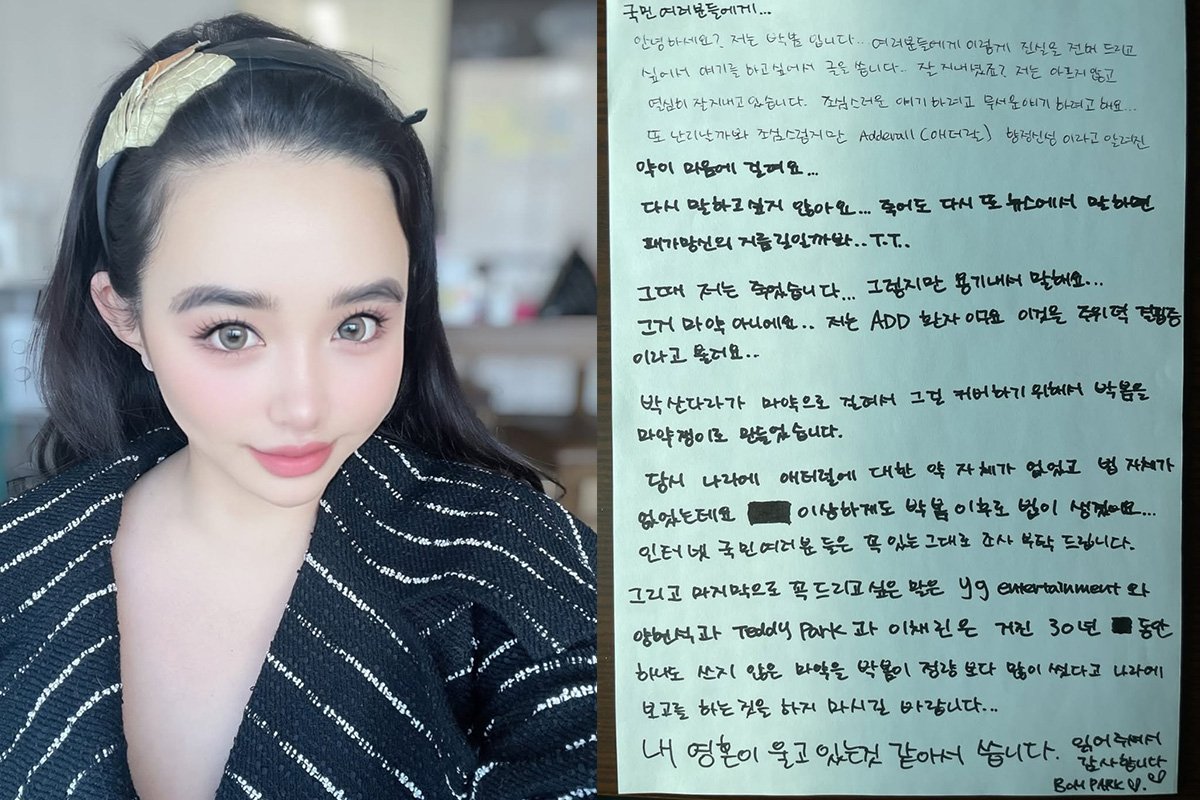 국민여러분들에게...
안녕하세요? 저는 박봄 입니다.. 여러분들에게 이렇게 진실을 전해 드리고
싶어서 얘기를 하고싶어서 글을 씁니다.. 잘 지내셨죠? 저는 아프지 않고
열심히 잘지내고 있습니다. 조심스러운 얘기하려고 무서운얘기 하려고 해요...
또 난리난까봐 조심스럽지만 Adderall (애더랄) 향정신성 이라고 알려진
약이 마음에 걸려요...
다시 말하고싶지 않아요... 죽어도 다시 또 뉴스에서 말하면
패가망신의 지름길일까봐..T.T..
그때 저는 죽었습니다... 그렇지만 용기내서 말해요...
그거 마약 아니에요.. 저는 ADD 환자 이구요 이것은 주위력 결핍증
이라고 불려요..
박산다라가 마약으로 걸려서 그걸 커버하기위해서 박봄을
마약쟁이로 만들었습니다.
당시 나라에 애터럴에 대한 약 자체가 없었고 법 자체가
없었는데요 이상하게도 박봄 이후로 법이 생겼어요...
인터넷 국민여러분들은 꼭 있는그대로 조사 부탁 드립니다.
그리고 마지막으로 꼭 드리고 싶은 말은 yg entertainment 와
양현석과 Teddy Park 과 이채린은 거진 30년 동안
하나도 쓰지 않은 마약을 박봄이 정량 보다 많이 썼다고 나라에
보고를 하는것을 하지 마시길 바랍니다...
내 영혼이 울고 있는것 같아서 씁니다.
읽어주셔서
감사합니다♡
BOM PARK♡.